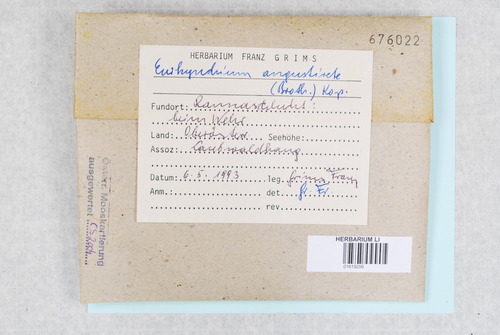 676022
HERBARIUM FRANZ GRIMS
Eurhynchium angustirete
(Broth.) Kop.
Fundort: Rannaschlucht:
beim Wehr
Land: Oberöster Seehöhe:
Assoz: Laubwaldhang
Datum: 6.5.1993 Leg. Grims Franz
Anm.: det. Gr. Fr.
rev.
Österr. Mooskartierung
ausgewertet
HERBARIUM LI